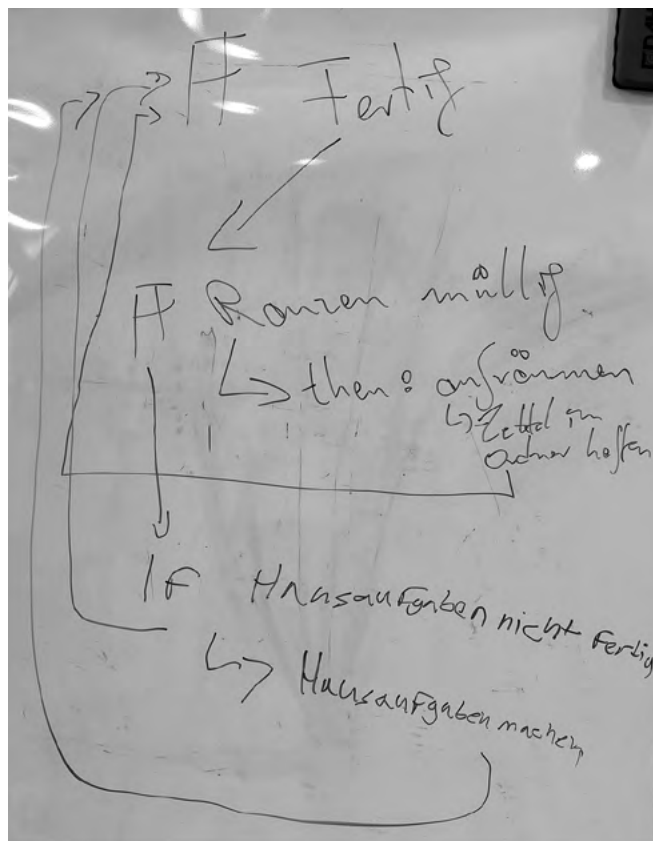 IF Fertig
IF Ranzen müllig
then: aufräumen
Zettel in
Ordner heften
IF Hausaufgaben nicht Fertig
Hausaufgaben machen